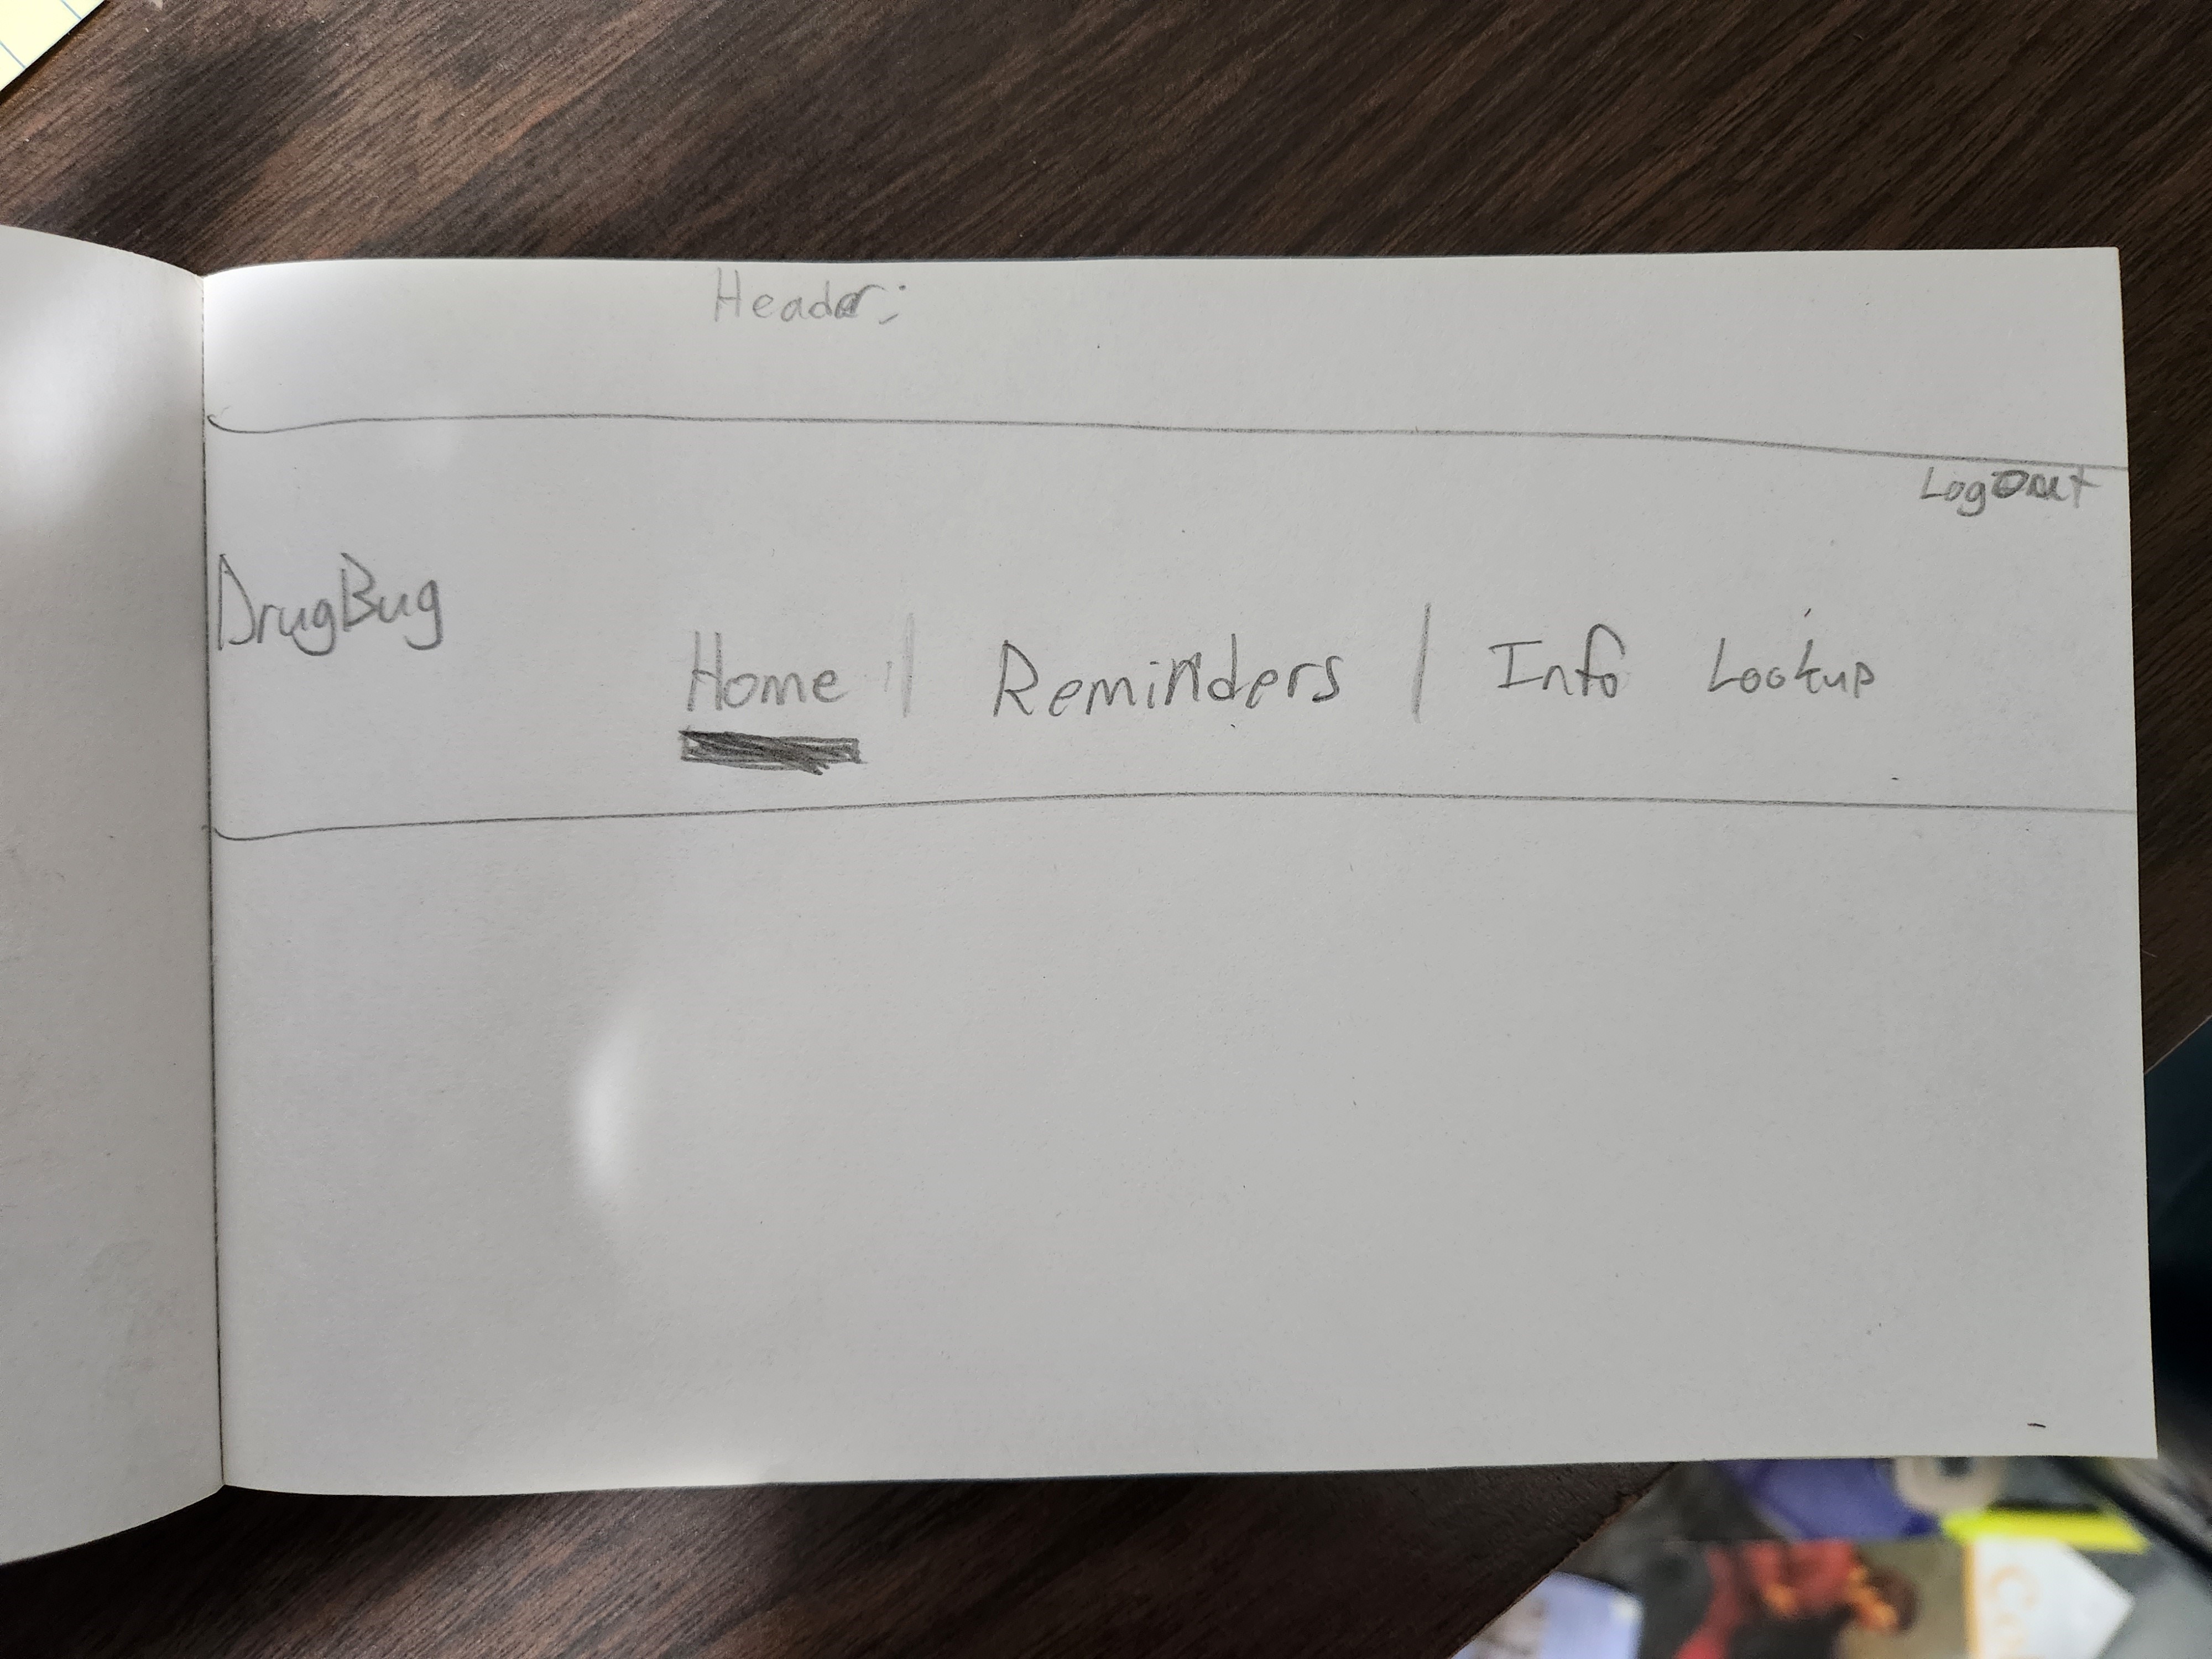 Header:
LogOut
DrugBug
Home | Reminders | Info Lookup